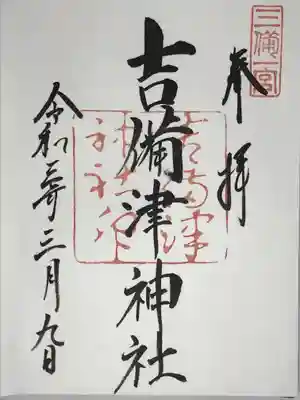 三備一宮
奉拝
吉備津神社
令和三年三月九日